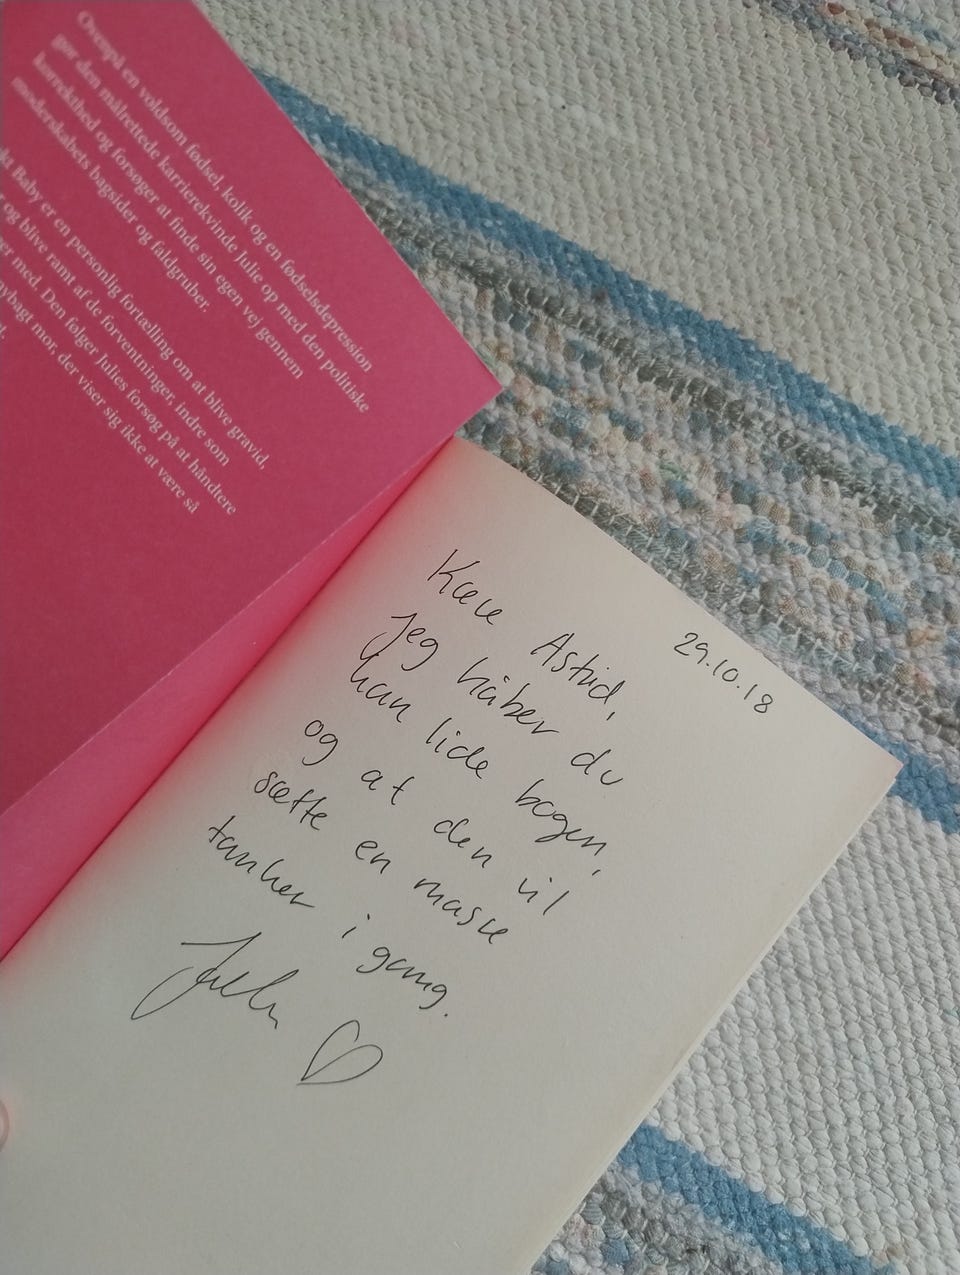 Ovenpå en voldsom fødsel, kolik og en fødselsdepression
gør den målrettede karrierekvinde Julie op med den politiske
korrekthed og forsøger at finde sin egen vej gennem
moderskabets bagsider og faldgruber.
Baby er en personlig fortælling om at blive gravid,
og blive ramt af de forventninger, indre som
med. Den følger Julies forsøg på at håndtere
mor, der viser sig ikke at være så
29.10.18
Kære Astrid,
Jeg håber du
kan lide bogen,
og at den vil
sætte en masse
tanker i gang.